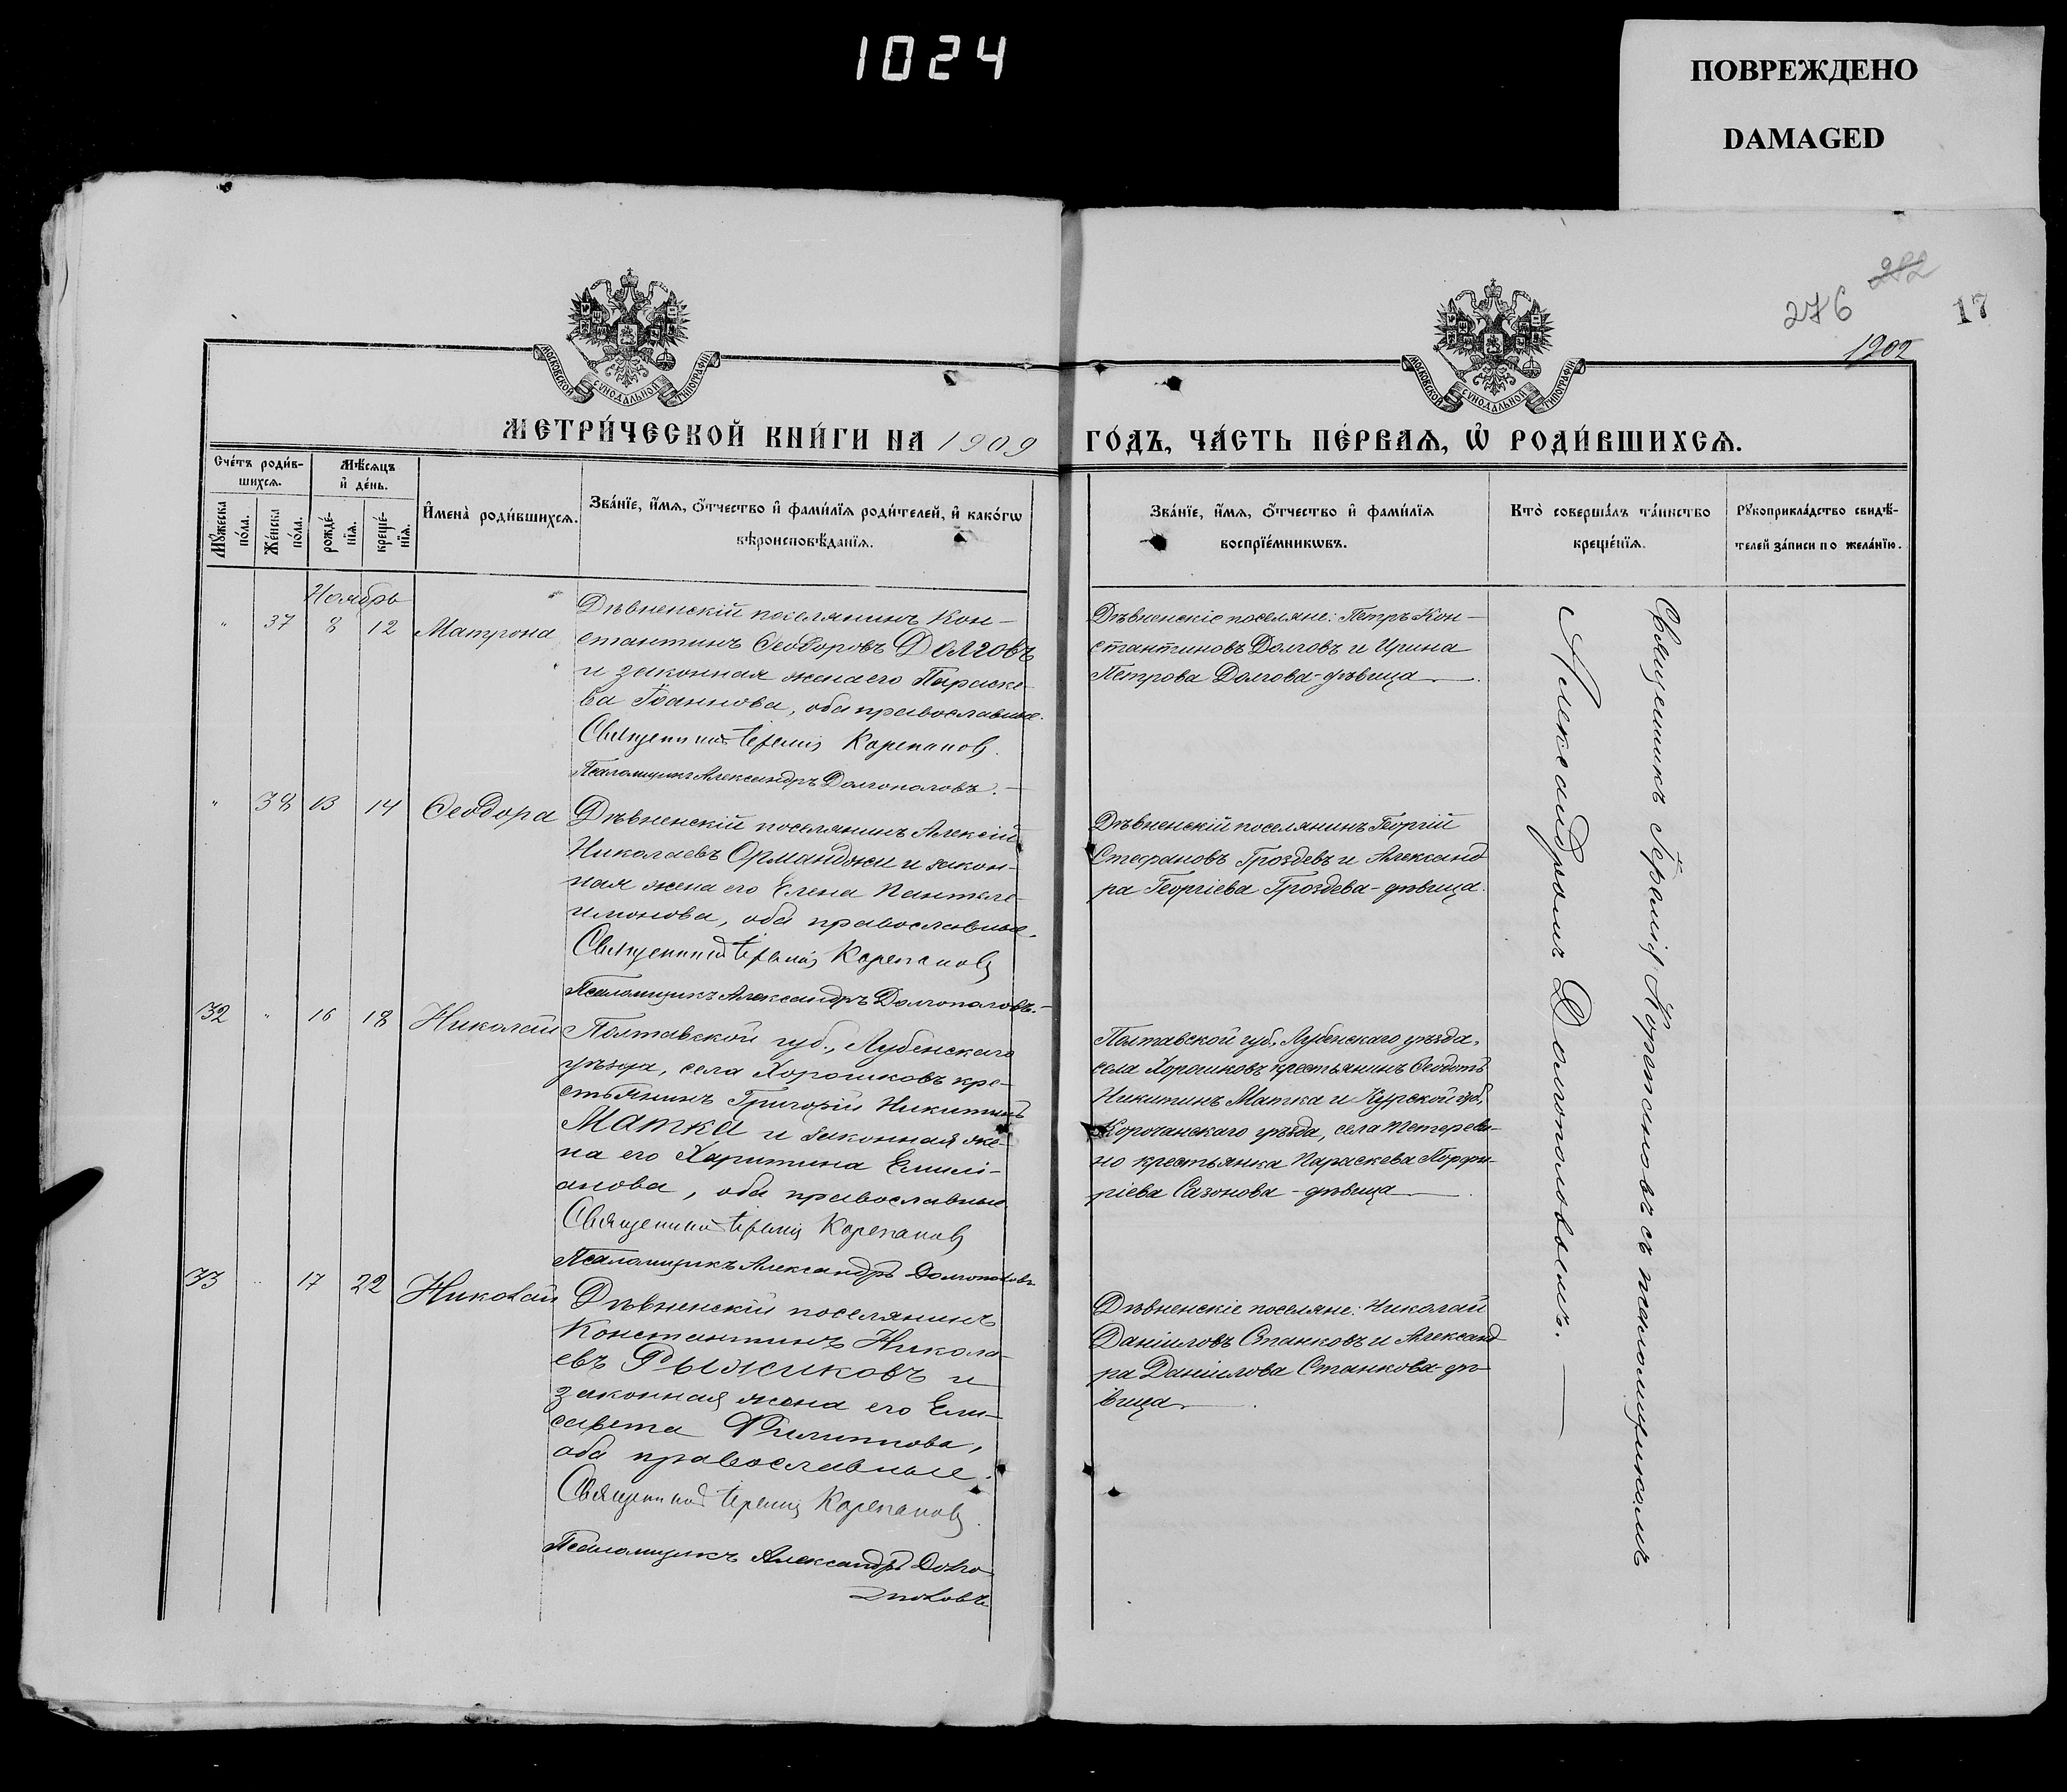 1024
ПОВРЕЖДЕНО
DAMAGED
282
276
17
1902
МОСКОВСКОЙ СѴНОДАЛЬНОЙ ТИПОГРАФІИ
МОСКОВСКОЙ СѴНОДАЛЬНОЙ ТИПОГРАФІИ
МЕТРИ́ЧЕСКОЙ КНИ́ГИ НА 1909 ГО́ДЪ, ЧА́СТЬ ПЕ́РВАѦ, Ѡ҆ РОДИ́ВШИХСѦ.
Сче́тъ роди́в-
шихсѧ.
Мѣ́сѧцъ
и҆ де́нь.
Мꙋ́жеска
по́ла.
Же́нска
по́ла.
рожде́-
нїѧ.
креще́-
нїѧ.
И҆мена̀ роди́вшихсѧ.
Зва́нїе, и҆́мѧ, ѻ҆́тчество и҆ фами́лїѧ роди́телей, и҆ како́гѡ
вѣроисповѣ́данїѧ.
Зва́нїе, и҆́мѧ, ѻ҆́тчество и҆ фами́лїѧ
воспрїе́мникѡвъ.
Кто̀ соверша́лъ та́инство
креще́нїѧ.
Рꙋкоприкла́дство свидѣ́-
телей за́писи по жела́нїю.
Ноябрь
" 37 8 12 Матрона
Дѣвненскій поселянинъ Кон-
стантинъ Ѳеодоровъ Долговъ
и законная жена его Параске-
ва Іоаннова, оба православные.
Священникъ Іеремія Карепановъ.
Псаломщикъ Александръ Долгополовъ.
Дѣвненскіе поселяне: Петръ Кон-
стантиновъ Долговъ и Ирина
Петрова Долгова-дѣвица.
" 38 13 14 Ѳеодора
Дѣвненскій поселянинъ Алексій
Николаевъ Орманджи и закон-
ная жена его Елена Пантеле-
имонова, оба православные.
Священникъ Іеремія Карепановъ
Псаломщикъ Александръ Долгополовъ.
Дѣвненскій поселянинъ Георгій
Стефановъ Гроздевъ и Александ
ра Георгіева Гроздева-дѣвица.
32 " 16 18 Николай
Полтавской губ., Лубенскаго
уѣзда, села Хорошковъ кре-
стьянинъ Григорій Никитинъ
Матка и законная же-
на его Харитина Емилі-
анова, оба православные
Священникъ Іеремія Карепановъ
Псаломщикъ Александръ Долгополовъ
Полтавской губ., Лубенскаго уѣзда,
села Хорошковъ крестьянинъ Ѳеодотъ
Никитинъ Матка и Курской губ.,
Корочанскаго уѣзда, села Тетереви-
но крестьянка Параскева Порфи-
ріева Сазонова-дѣвица.
33 " 17 22 Николай
Дѣвненскій поселянинъ
Константинъ Никола-
евъ Рыжиковъ и
законная жена его Ели-
савета Филиппова,
оба православные.
Священникъ Іеремія Карепановъ.
Псаломщикъ Александръ Долго-
половъ.
Дѣвненскіе поселяне: Николай
Даніиловъ Станковъ и Александ
ра Даніилова Станкова-дѣ-
вица.
Священникъ Іереміа Карепановъ съ псаломщикомъ
Александромъ Долгополовымъ.